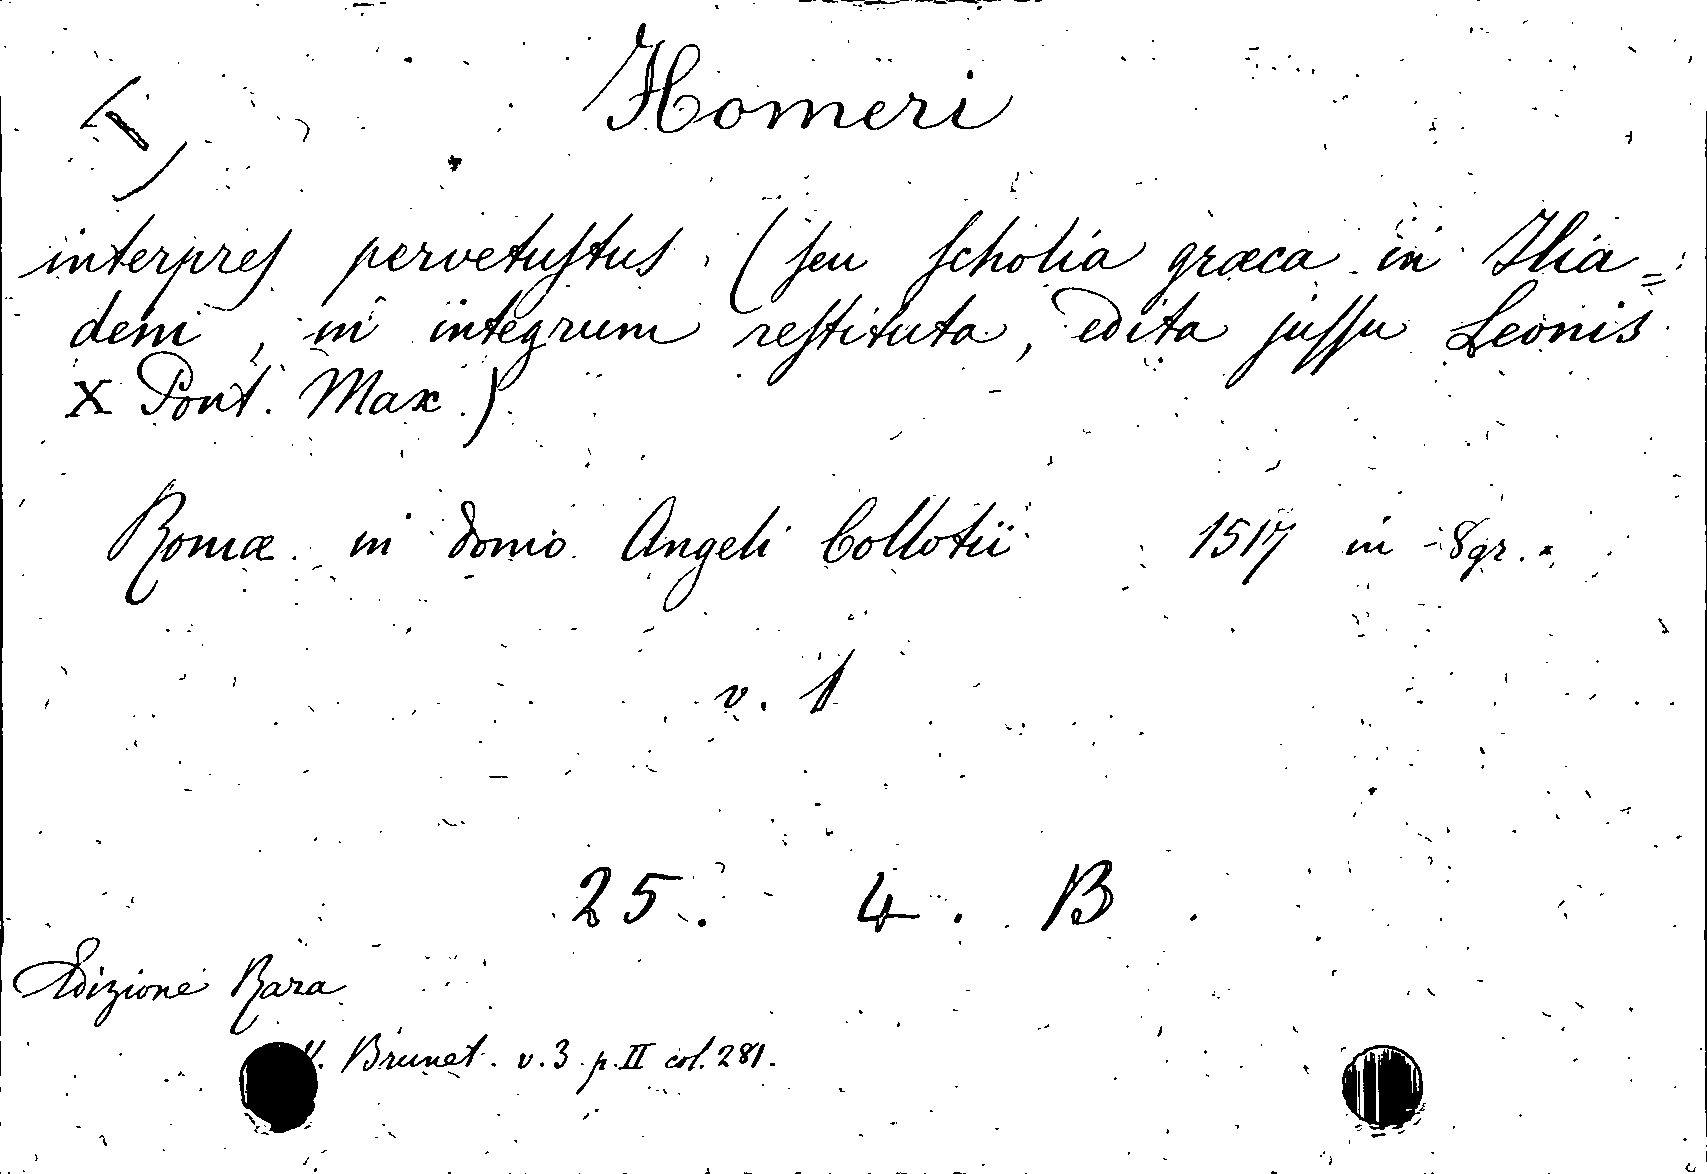 Homeri
interpres pervetustus. (seu scholia græca in Ilia=
dem, in integrum restituta, edita jussu Leonis
X Pont. Max.)
Romæ in domo Angeli Collotii 1517 in-8 gr.
v. 1
25. 4. B.
Edizione Rara
V. Brunet. v. 3 p. II col. 281.